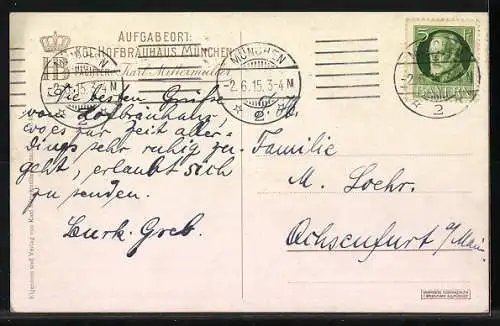 AUFGABEORT:
Kgl. HOFBRÄUHAUS MÜNCHEN
HB
PÄCHTER: Karl Mittermüller
MÜNCHEN
-2.6.15.3-4N
2
BAYERN
Die besten Grüße
vom Hofbräuhaus,
wo es zur Zeit aller-
dings sehr ruhig zu-
geht, erlaubt sich
zu senden.
Greb.
Familie
M. Loehr.
Ochsenfurt a/Main.
Eigentum und Verlag von Karl